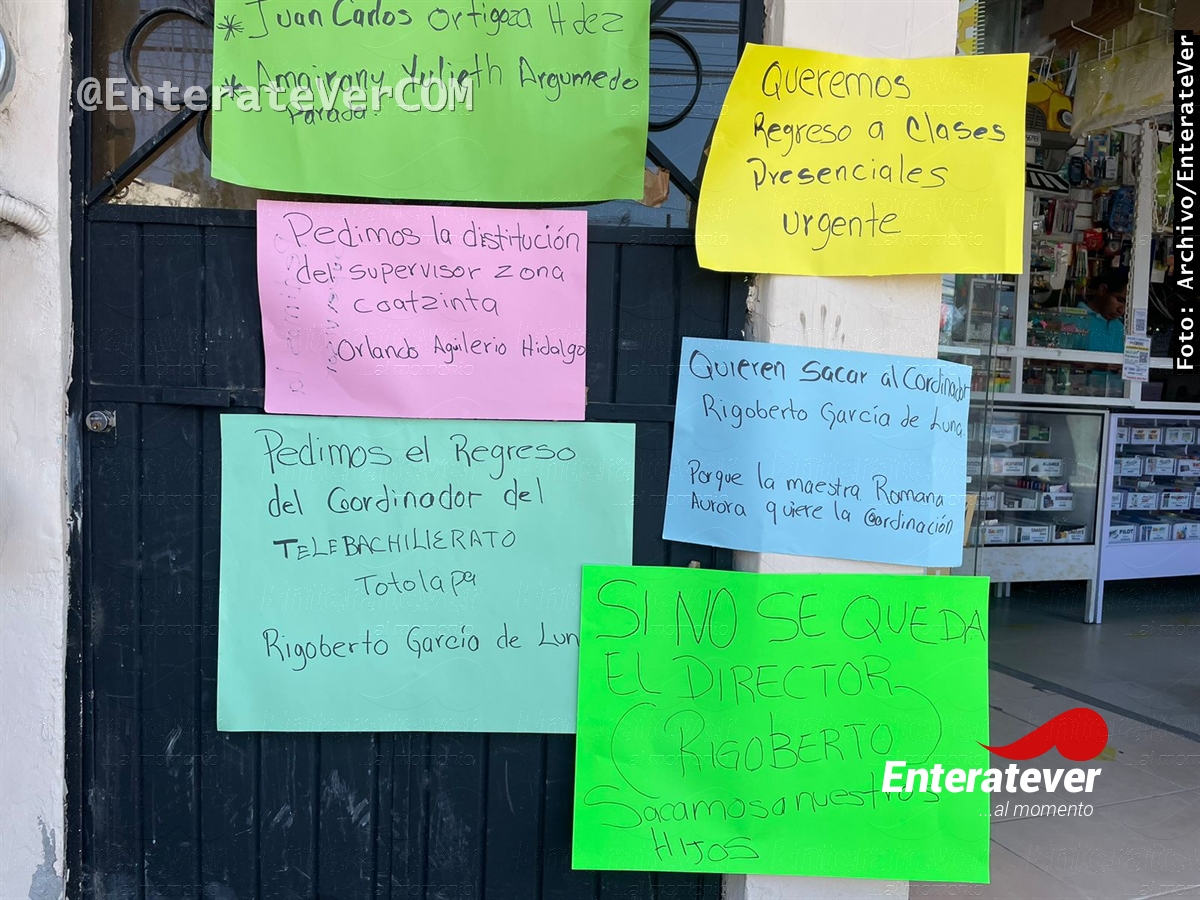 * Juan Carlos Ortigoza Hdez
* Amairany Yulieth Argumedo
Parada.
@EnterateVerCOM
Queremos
Regreso a Clases
Presenciales
urgente
Pedimos la distitución
del supervisor zona
coatzinta
Orlando Aguilerio Hidalgo
Quieren sacar al Cordinador
Rigoberto García de Luna.
Porque la maestra Romana
Aurora quiere la Coordinación
Pedimos el Regreso
del Coordinador del
TELEBACHILLERATO
Totolapa
Rigoberto García de Lun
SI NO SE QUEDA
EL DIRECTOR
(RIGOBERTO)
Sacamos a nuestros
HIJOS
Foto: Archivo/EnterateVer
Enteratever
...al momento